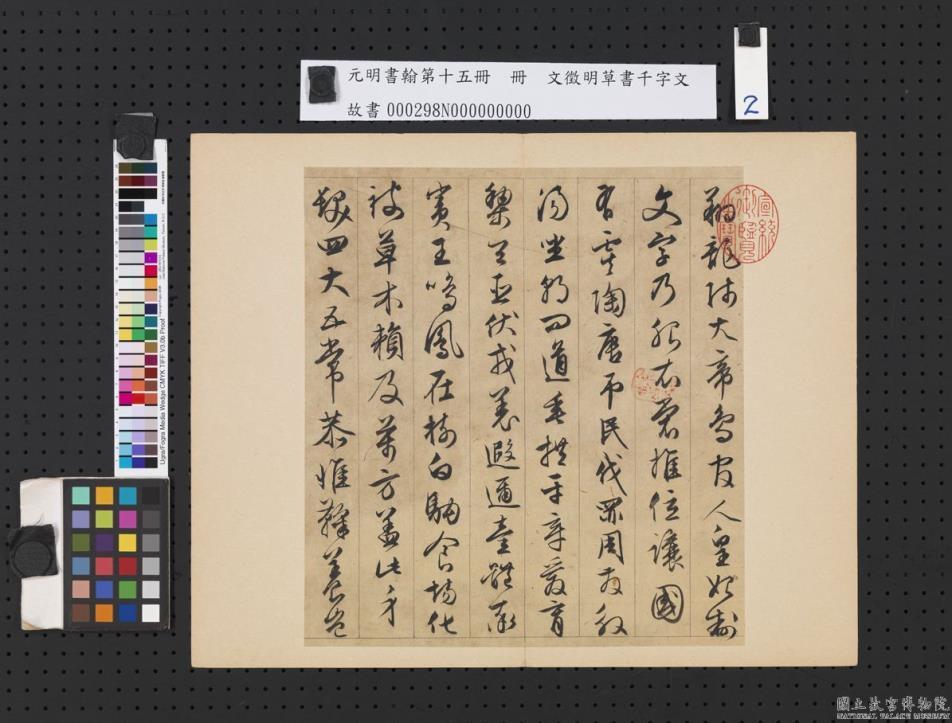 元明書翰第十五冊　冊　文徵明草書千字文
故書000298N000000000
2
翔龍師火帝鳥官人皇始制
文字乃服衣裳推位讓國
有虞陶唐弔民伐罪周發殷
湯坐朝問道垂拱平章愛育
黎首臣伏戎羌遐邇壹體率
賓王鳴鳳在樹白駒食場化
被草木賴及萬方蓋此身
髮四大五常恭惟鞠養豈
宣統御覽之寶
Ugra/Fogra Media Wedge CMYK TIFF V3.0b Proof
國立故宮博物院
NATIONAL PALACE MUSEUM